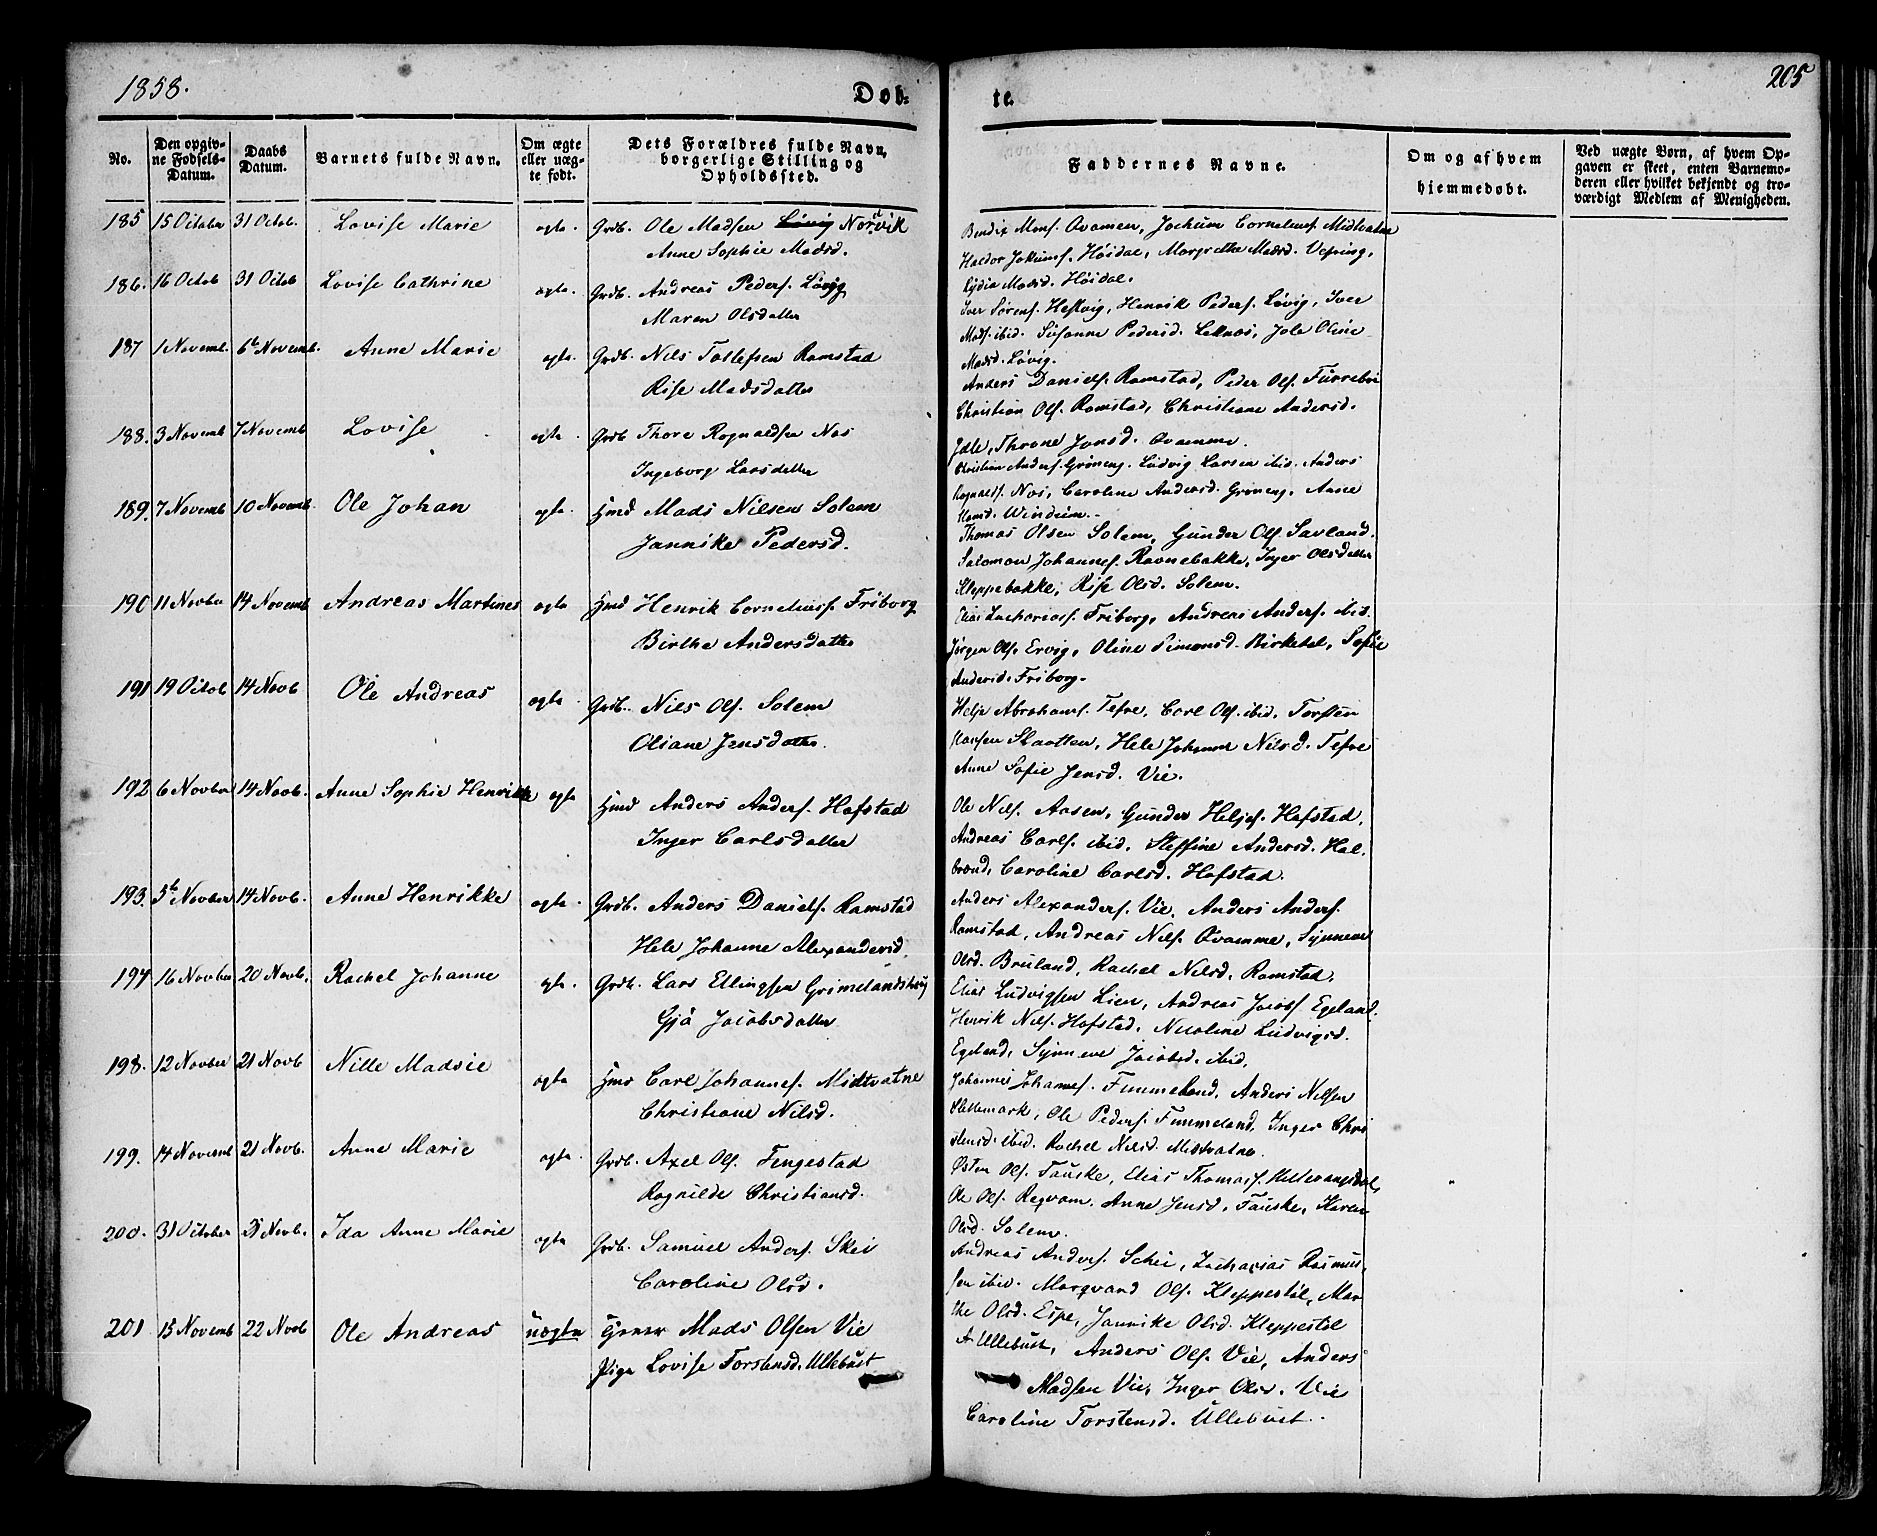 1858.
Døb-
te.
205
No.
Den opgiv-
ne Fødsels-
Datum.
Daabs
Datum.
Barnets fulde Navn.
Om ægte
eller uæg-
te født.
Dets Forældres fulde Navn,
borgerlige Stilling og
Opholdssted.
Faddernes Navne.
Om og af hvem
hjemmedøbt.
Ved uægte Børn, af hvem Op-
gaven er skeet, enten Barnemo-
deren eller hvilket bekjendt og tro-
værdigt Medlem af Menigheden.
185 15 October 31 Octob. Lovise Marie ægte. Grdb. Ole Madsen Løvig Norvik
Anne Sophie Madsd.
Bendix Mons. Qvamen, Jochum Cornelius. Midtvatne
Haldor Jokums. Høidal, Margrethe Madsd. Vefring,
Lydia Madsd. Høidal.
186. 16 Octob 31 Octob Lovise Cathrine ægte. Grdb. Andreas Peders. Løvig
Maren Olsdatter
Iver Sørens. Hestvig, Henrik Peders. Løvig, Iver
Mads. ibid. Susanne Pedersd. Leknæs, Jole Oline
Madsd. Løvig.
187 1 Novemb. 6te Novemb. Anne Marie ægte. Grdb. Nils Tollefsen Ramstad
Rise Madsdatter
Anders Daniels. Ramstad, Peder Ols. Furrebø
Christian Ols. Ramstad, Christiane Andersd.
Jale, Throne Jonsd. Qvamme.
188. 3 Novemb 7 Novemb Lovise ægte. Grdb Thore Rognaldsen Nos
Ingeborg Larsdatter
Christian Anders. Grøneng. Ludvig Larsen ibid. Anders
Rognalds. Nos, Caroline Andersd. Grøneng, Anne
Hansd. Windum.
189. 7 Novemb 10 Novemb. Ole Johan ægte. Hmd Mads Nilsen Solem
Jannike Pedersd.
Thomas Olsen Solem, Gunder Ols. Savland.
Salomon Johannes. Ravnebakke, Inger Olsdatter
Kleppebakke, Rise Olsd. Solem.
190 11 Novber 14 Novemb Andreas Martines ægte Hmd Henrik Cornelius. Friborg
Birthe Andersdatter
Elias Zacharias. Friborg, Andreas Anders. ibid.
Jørgen Ols. Ervig, Oline Simonsd. Birketvet, Sofie
Andersd. Friborg.
191 19 Octob 14 Novb Ole Andreas ægte. Grdb. Nils Ols. Solem
Oliane Jensdatter.
Helje Abrahams. Tefre, Carl Ols. ibid, Torsten
Hansen Slaatten, Hele Johanne Nilsd. Tefre
Anne Sofie Jensd. Vie.
192 6 Novber 14 Novb. Anne Sophie Henrikke ægte Hmd Anders Anders. Hafstad
Inger Carlsdatter
Ole Nils. Aasen, Gunder Heljes. Hafstad,
Andreas Carls. ibid. Steffine Andersd. Hal-
brend, Caroline Carlsd. Hafstad.
193. 5te Novber 14 Novb. Anne Henrikke ægte. Grdb. Anders Daniels. Ramstad
Hele Johanne Alexandersd.
Anders Alexanders. Vie. Anders Anders.
Ramstad, Andreas Nils. Qvamme, Synneve
Olsd. Bruland, Rachel Nilsd. Ramstad.
197 16 Novber 20 Novb. Rachel Johanne ægte. Grdb. Lars Ellingsen Grimelandshaug
Gjø Jacobsdatter
Elias Ludvigsen Lien, Andreas Jacobs. Egeland.
Henrik Nils. Hafstad. Nicoline Ludvigsd.
Egeland, Synneve Jacobsd. ibid.
198. 12 Novber 21 Novb Nille Madsie ægte Hmd Carl Johannes. Midtvatne
Christiane Nilsd.
Johannes Johannes. Fimmeland. Anders Nilsen
Hellemark, Ole Peders. Fimmeland, Inger Chri
stensd. ibid. Rachel Nilsd. Midtvatne.
199. 14 Novemb 21 Novb. Anne Marie ægte. Grdb. Axel Ols. Fengestad
Ragnilde Christiansd.
Østen Ols. Fauske, Elias Thomass. Hellevangsdal,
Ole Ols. Reqvam, Anne Jensd. Fauske, Karen
Olsd. Solem.
200. 31 October 21 Novb. Ida Anne Marie ægte Grdb. Samuel Anders. Skei
Caroline Olsd.
Andreas Anders. Schei, Zacharias Rasmus-
sen ibid. Marqvard Ols. Kleppestøl, Mar
the Olsd. Espe, Jannike Olsd. Kleppestøl
201 15 Novemb 22 Novb Ole Andreas uægte Tjener Mads Olsen Vie
Pige Lovise Torstensd. Ullebust
A. Ullebust, Anders Ols. Vie, Anders
Madsen Vie, Inger Olsd. Vie
Caroline Torstensd. Ullebust.